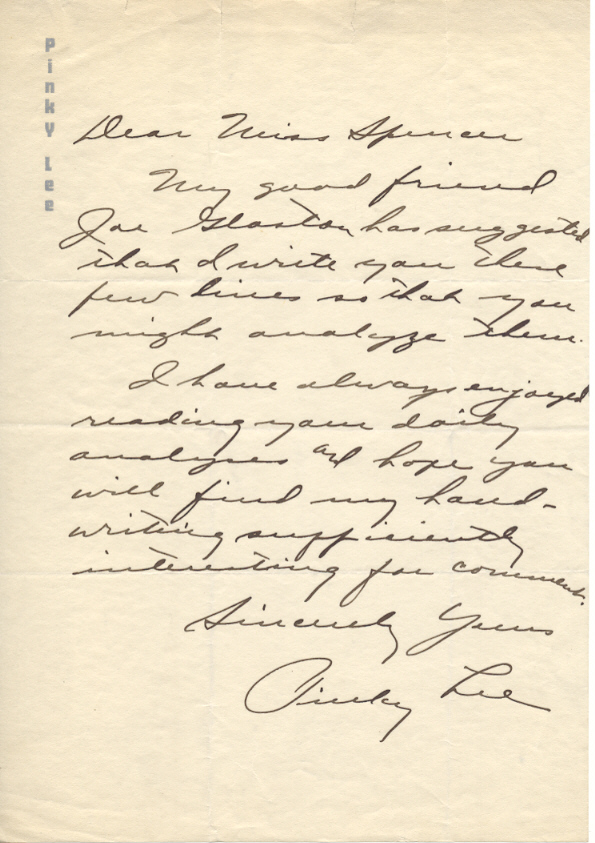 Pinky Lee
Dear Miss Spencer
My good friend
Joe Glaston has suggested
that I write you these
few lines so that you
might analyze them.
I have always enjoyed
reading your daily
analyses and hope you
will find my hand-
writing sufficiently
interesting for comment.
Sincerely Yours
Pinky Lee